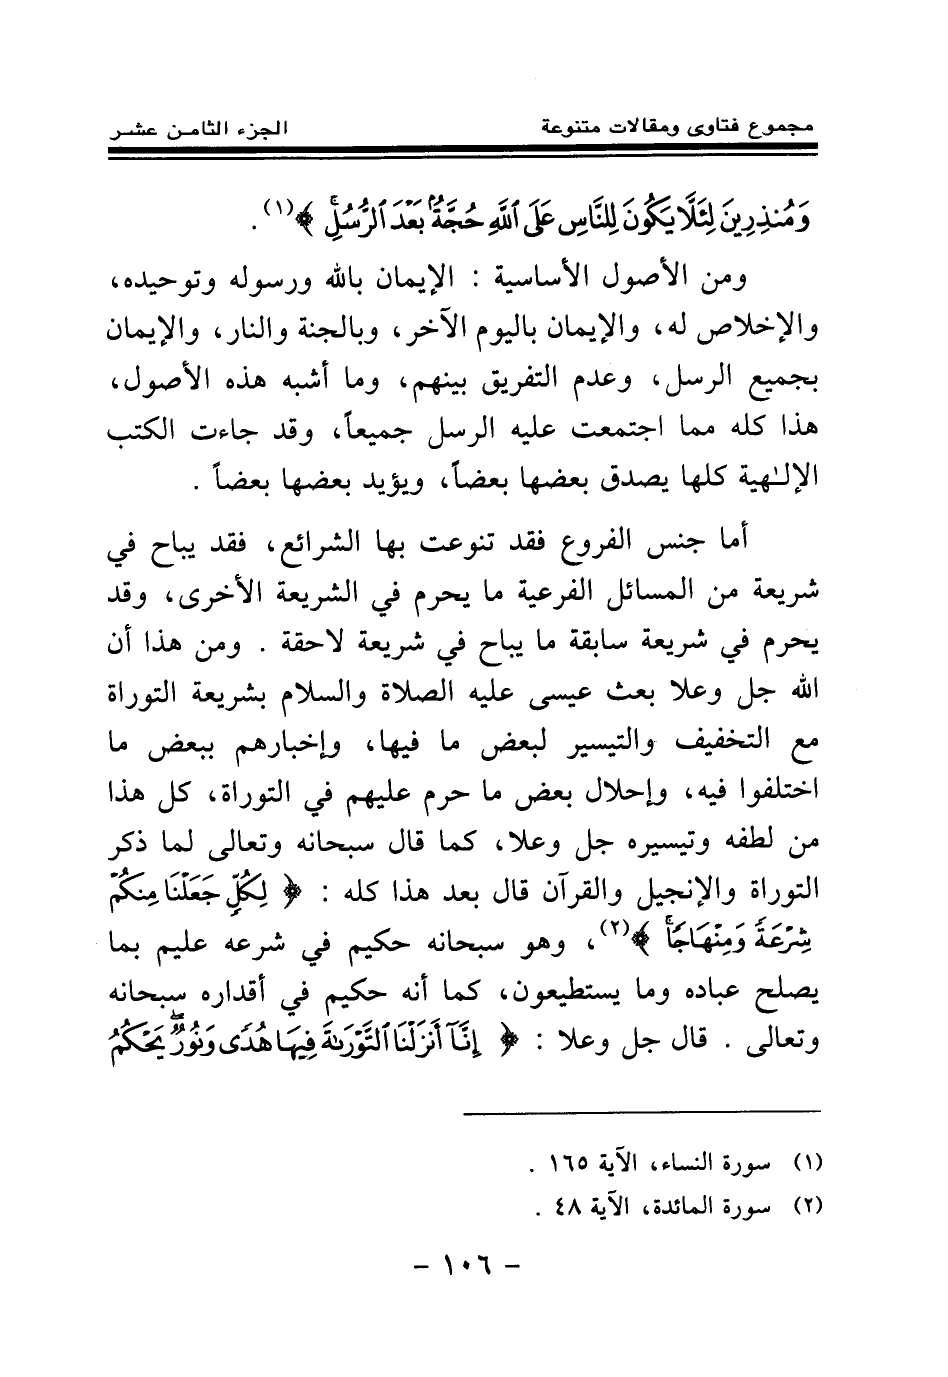 مجموع فتاوى ومقالات متنوعة الجزء الثامن عشر
وَمُنذِرِينَ لِئَلَّا يَكُونَ لِلنَّاسِ عَلَى ٱللَّهِ حُجَّةُۢ بَعْدَ ٱلرُّسُلِۚ ﴾(١) .
ومن الأصول الأساسية : الإيمان بالله ورسوله وتوحيده،
والإخلاص له، والإيمان باليوم الآخر، وبالجنة والنار، والإيمان
بجميع الرسل، وعدم التفريق بينهم، وما أشبه هذه الأصول،
هذا كله مما اجتمعت عليه الرسل جميعاً، وقد جاءت الكتب
الإلـٰهية كلها يصدق بعضها بعضاً، ويؤيد بعضها بعضاً .
أما جنس الفروع فقد تنوعت بها الشرائع، فقد يباح في
شريعة من المسائل الفرعية ما يحرم في الشريعة الأخرى، وقد
يحرم في شريعة سابقة ما يباح في شريعة لاحقة . ومن هذا أن
الله جل وعلا بعث عيسى عليه الصلاة والسلام بشريعة التوراة
مع التخفيف والتيسير لبعض ما فيها، وإخبارهم ببعض ما
اختلفوا فيه، وإحلال بعض ما حرم عليهم في التوراة، كل هذا
من لطفه وتيسيره جل وعلا، كما قال سبحانه وتعالى لما ذكر
التوراة والإنجيل والقرآن قال بعد هذا كله : ﴿ لِكُلٍّ جَعَلْنَا مِنكُمْ
شِرْعَةً وَمِنْهَاجًاۚ ﴾(٢)، وهو سبحانه حكيم في شرعه عليم بما
يصلح عباده وما يستطيعون، كما أنه حكيم في أقداره سبحانه
وتعالى . قال جل وعلا : ﴿ إِنَّآ أَنزَلْنَا ٱلتَّوْرَىٰةَ فِيهَا هُدًى وَنُورٌۖ يَحْكُمُ
(١) سورة النساء، الآية ١٦٥ .
(٢) سورة المائدة، الآية ٤٨ .
- ١٠٦ -